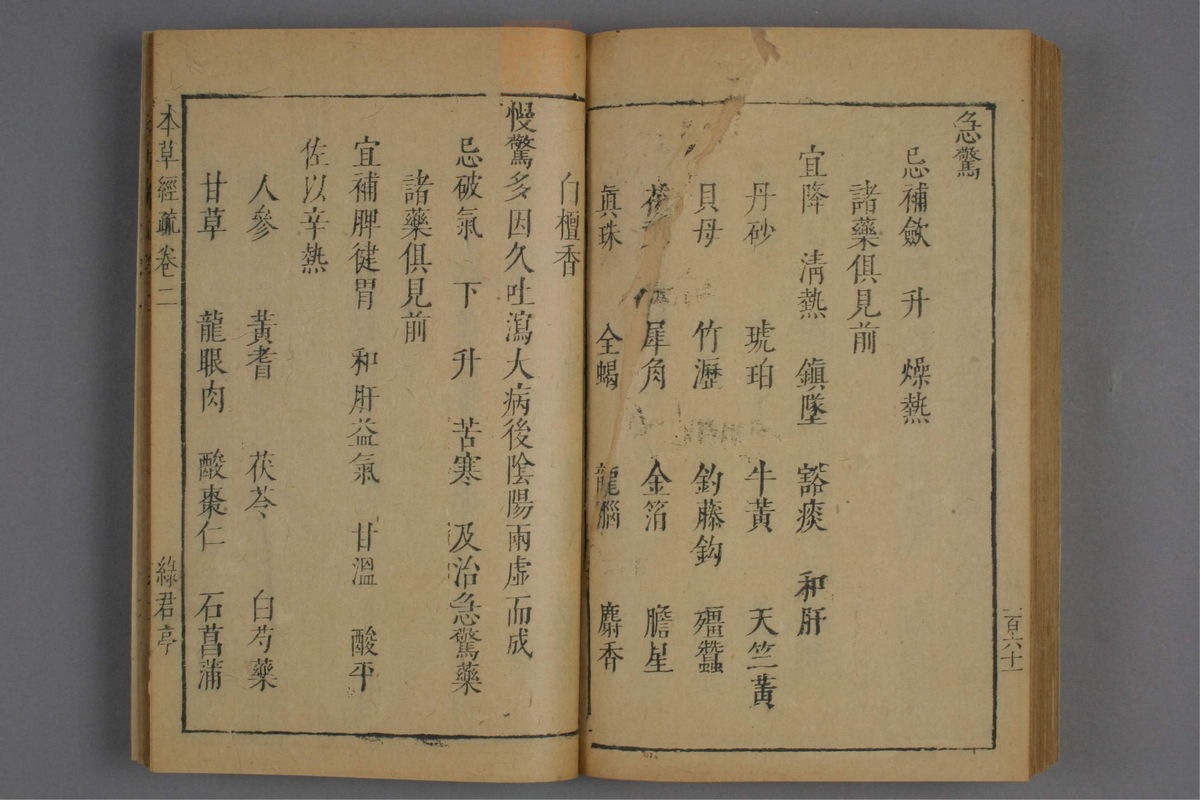 急驚
忌補斂 升 燥熱
諸藥俱見前
宜降 清熱 鎮墜 豁痰 和肝
丹砂 琥珀 牛黃 天竺黃
貝母 竹瀝 釣藤鈎 殭蠶
犀角 金箔 膽星
眞珠 全蝎 龍腦 麝香
一百六十一
白檀香
慢驚多因久吐瀉大病後陰陽兩虛而成
忌破氣 下 升 苦寒 及治急驚藥
諸藥俱見前
宜補脾健胃 和肝益氣 甘溫 酸平
佐以辛熱
人參 黃耆 茯苓 白芍藥
甘草 龍眼肉 酸棗仁 石菖蒲
本草經疏 卷二 綠君亭